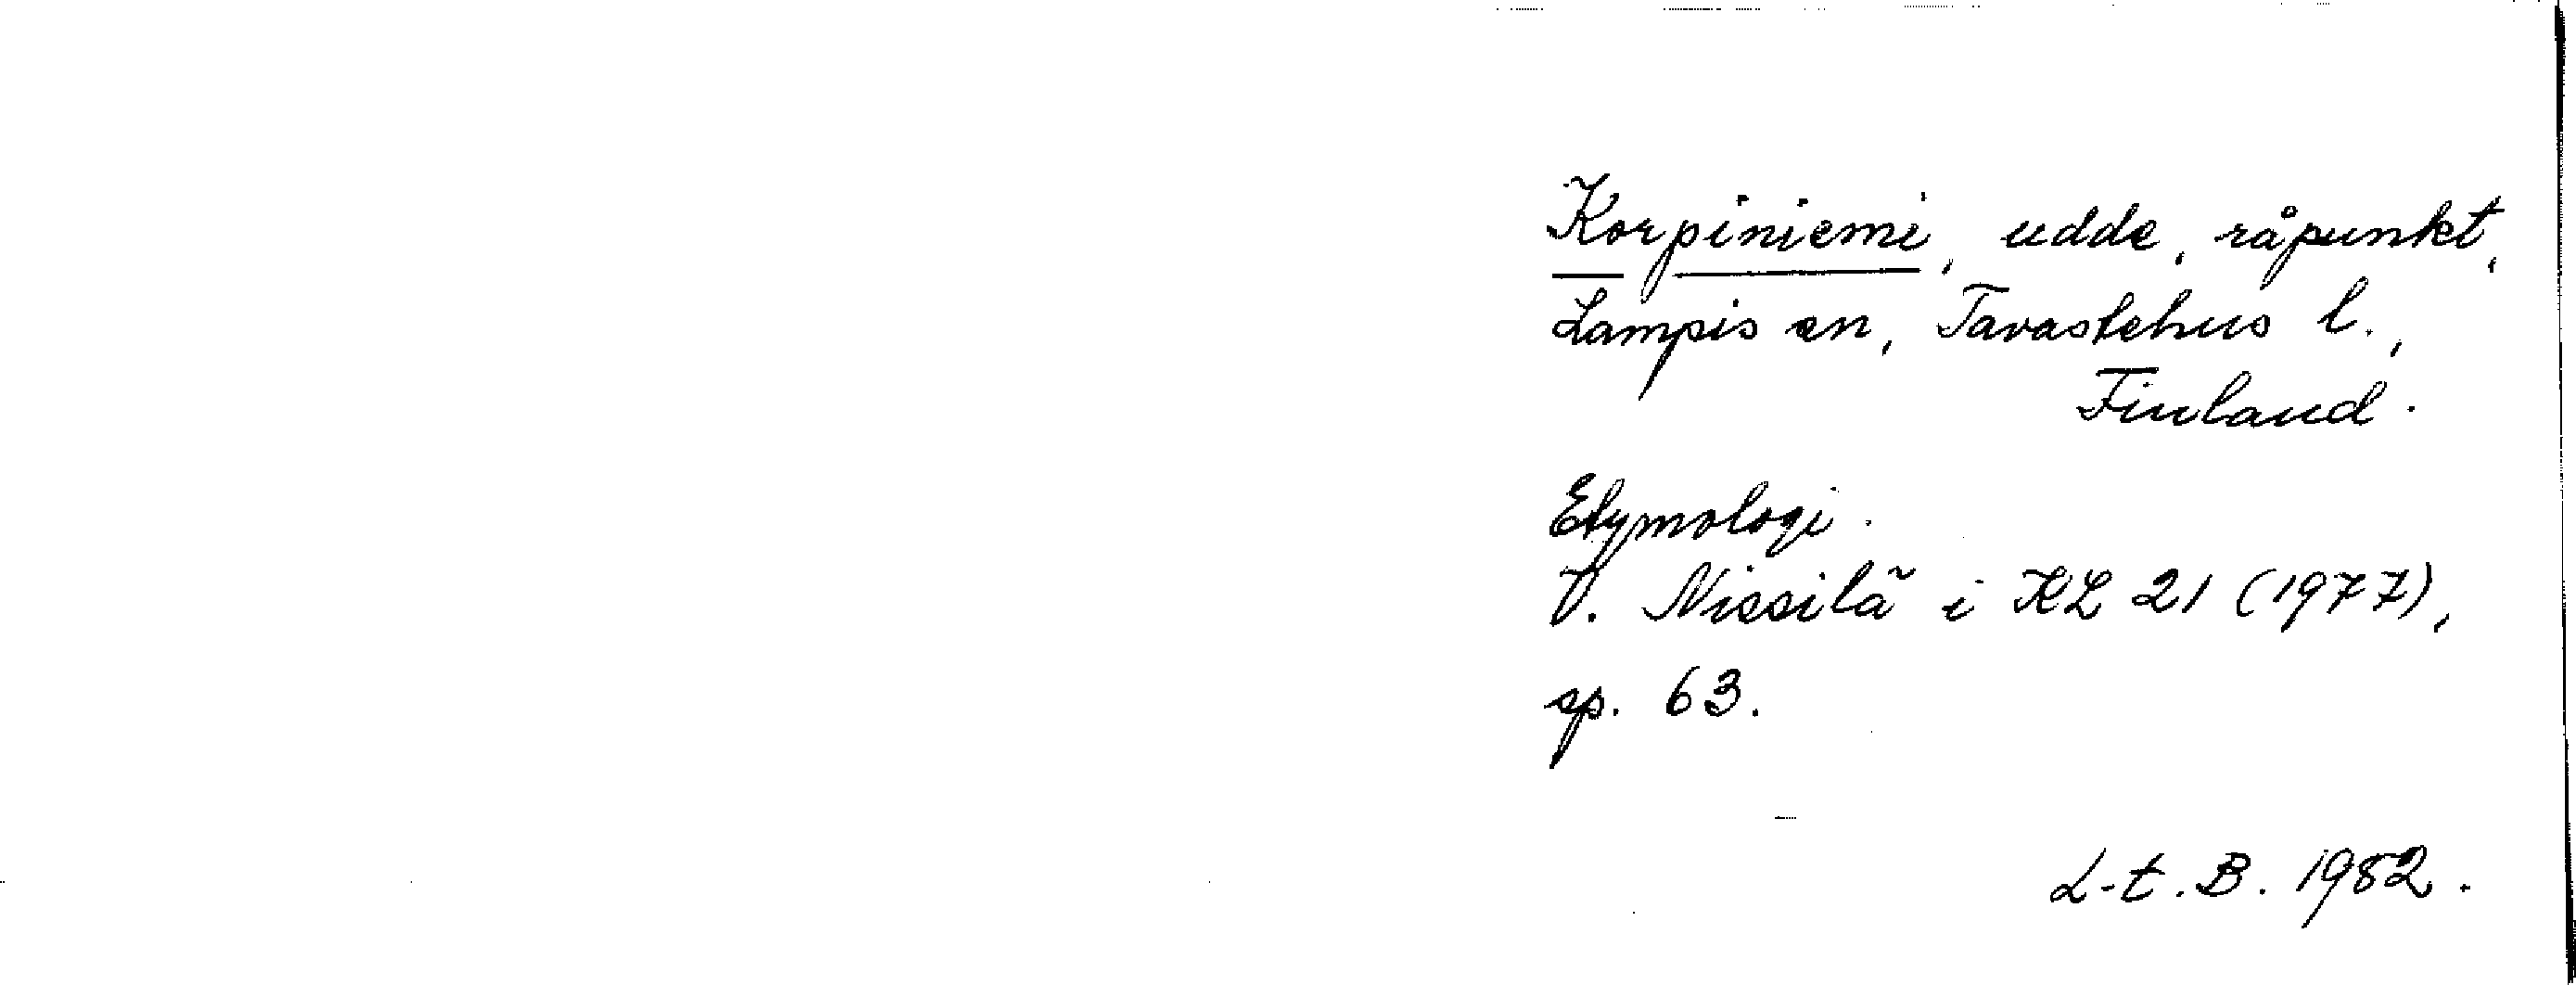 Korpiniemi, udde, råpunkt,
Lampis sn, Tavastehus l.,
Finland.
Etymologi.
V. Nissilä i KL 21 (1977),
sp. 63.
L-t. B. 1982.